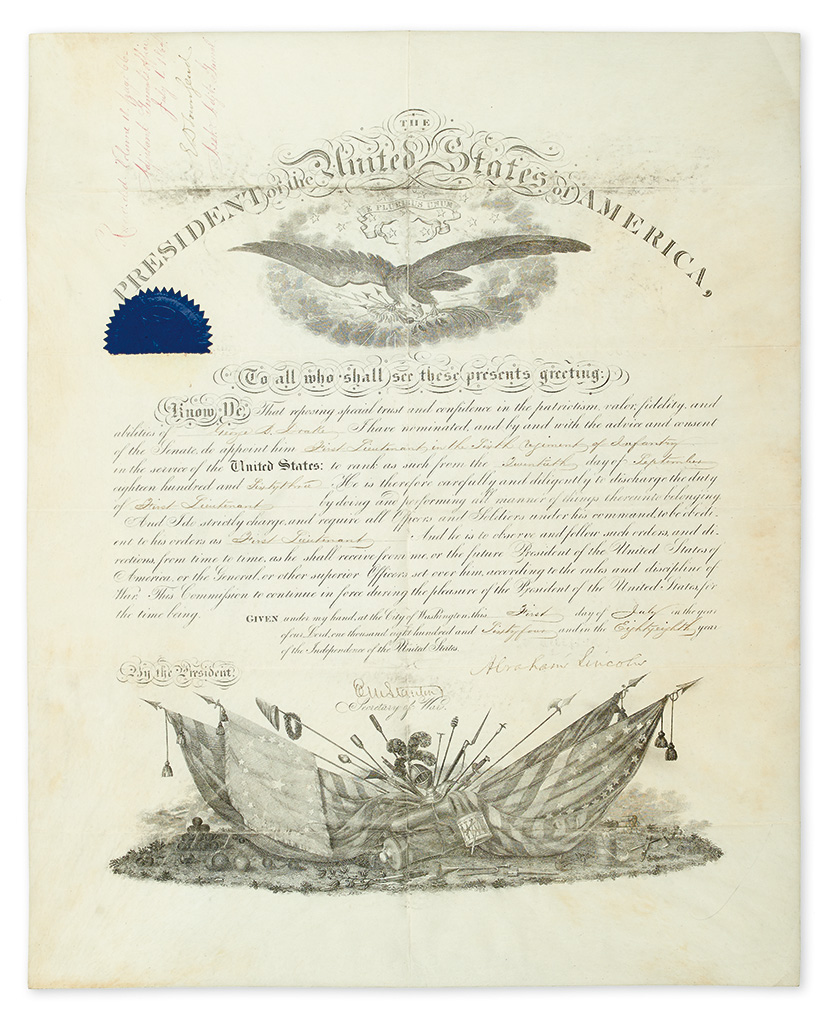 Adjutant General's Office
July 1
ED Townsend
Asst. Adjt. Genl.
THE
PRESIDENT of the United States of AMERICA,
E PLURIBUS UNUM
To all who shall see these presents greeting:
Know Ye, That reposing special trust and confidence in the patriotism, valor, fidelity, and
abilities of George A. I have nominated, and by and with the advice and consent
of the Senate, do appoint him First Lieutenant in the Regiment of Infantry
in the service of the United States: to rank as such from the Twentieth day of September
eighteen hundred and Sixty three. He is therefore carefully and diligently to discharge the duty
of First Lieutenant by doing and performing all manner of things thereunto belonging.
And I do strictly charge, and require all Officers and Soldiers under his command, to be obedi-
ent to his orders as First Lieutenant And he is to observe and follow such orders, and di-
rections, from time to time, as he shall receive from me, or the future President of the United States of
America, or the General, or other superior Officers set over him, according to the rules and discipline of
War. This Commission to continue in force during the pleasure of the President of the United States, for
the time being.
GIVEN under my hand, at the City of Washington, this First day of July in the year
of our Lord, one thousand eight hundred and Sixty four and in the Eighty eighth year
of the Independence of the United States.
Abraham Lincoln
By the President.
Edwin M Stanton
Secretary of War.